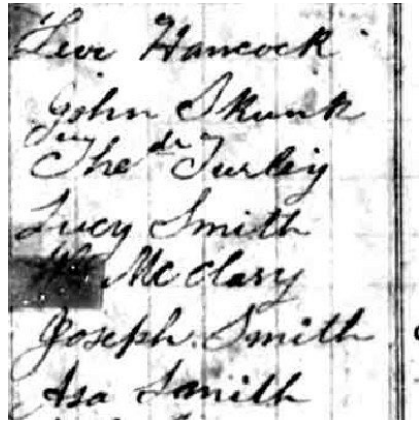 Levi Hancock
John Skunk
The dr Turley
Lucy Smith
Mc Clary
Joseph Smith
Asa Smith